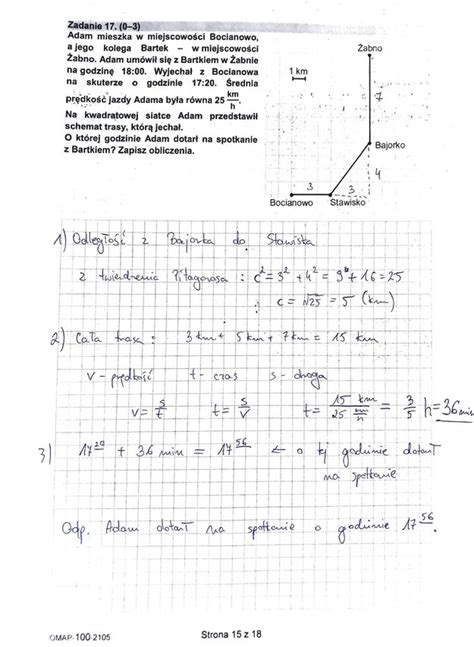 Zadanie 17. (0–3)
Adam mieszka w miejscowości Bocianowo,
a jego kolega Bartek – w miejscowości
Żabno. Adam umówił się z Bartkiem w Żabnie
na godzinę 18:00. Wyjechał z Bocianowa
na skuterze o godzinie 17:20. Średnia
prędkość jazdy Adama była równa 25 km/h.
Na kwadratowej siatce Adam przedstawił
schemat trasy, którą jechał.
O której godzinie Adam dotarł na spotkanie
z Bartkiem? Zapisz obliczenia.
Żabno
1 km
7
Bajorko
4
3
3
Bocianowo Stawisko
1) Odległość z Bajorka do Stawiska
z twierdzenia Pitagorasa : c² = 3² + 4² = 9 + 16 = 25
c = √25 = 5 (km)
2) Cała trasa : 3 km + 5 km + 7 km = 15 km
v - prędkość t - czas s - droga
v = s/t t = s/v t = 15 km / 25 km/h = 3/5 h = 36 min
3) 17²⁰ + 36 min = 17⁵⁶ ← o tej godzinie dotarł
na spotkanie
Odp. Adam dotarł na spotkanie o godzinie 17⁵⁶.
OMAP-100-2105
Strona 15 z 18